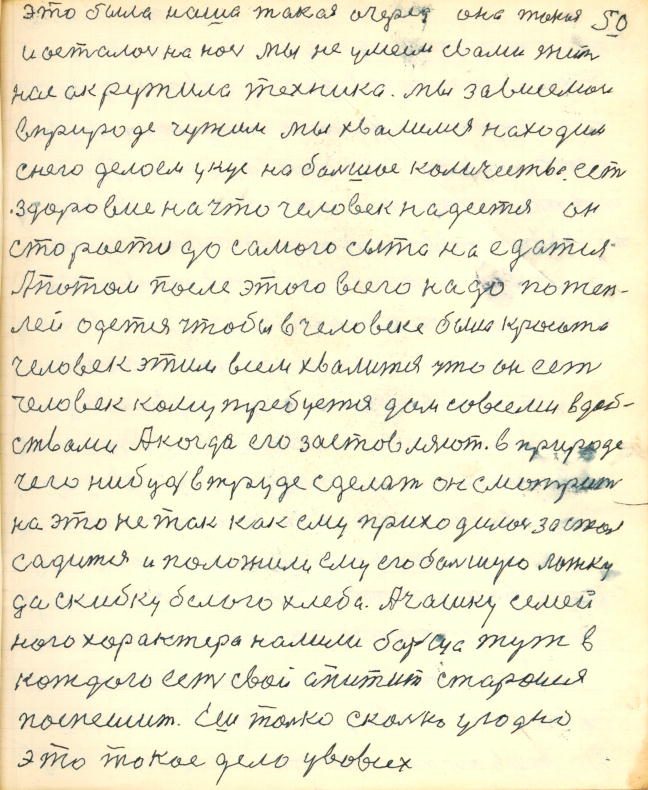 это была наша такая очередь она такая 50
и осталось на ноч мы не умеем свами жит
нас акружила техника. мы зависемаи
вприроде чужим мы хвалимся находим
снего делаем укус на большое количество. ест
здоровие на что человек надеется он
стороется до самого сыта на едатся
Апотом после этого всего надо потеп-
лей одется чтобы в человеке была красота
человек этим всем хвалится что он ест
человек кому требуется дом совсеми вдоб-
ствами Акогда его заставляют. в природе
чего нибуд втруде сделат он смотрит
на это не так как ему приходилос за стол
садится и положили ему его большую ложку
да скибку белого хлеба. Ачашку семей
ного характера налили борща тут в
каждого ест свой апитит старался
поспешит. Еш толко сколко угодно
это такое дело увовсех